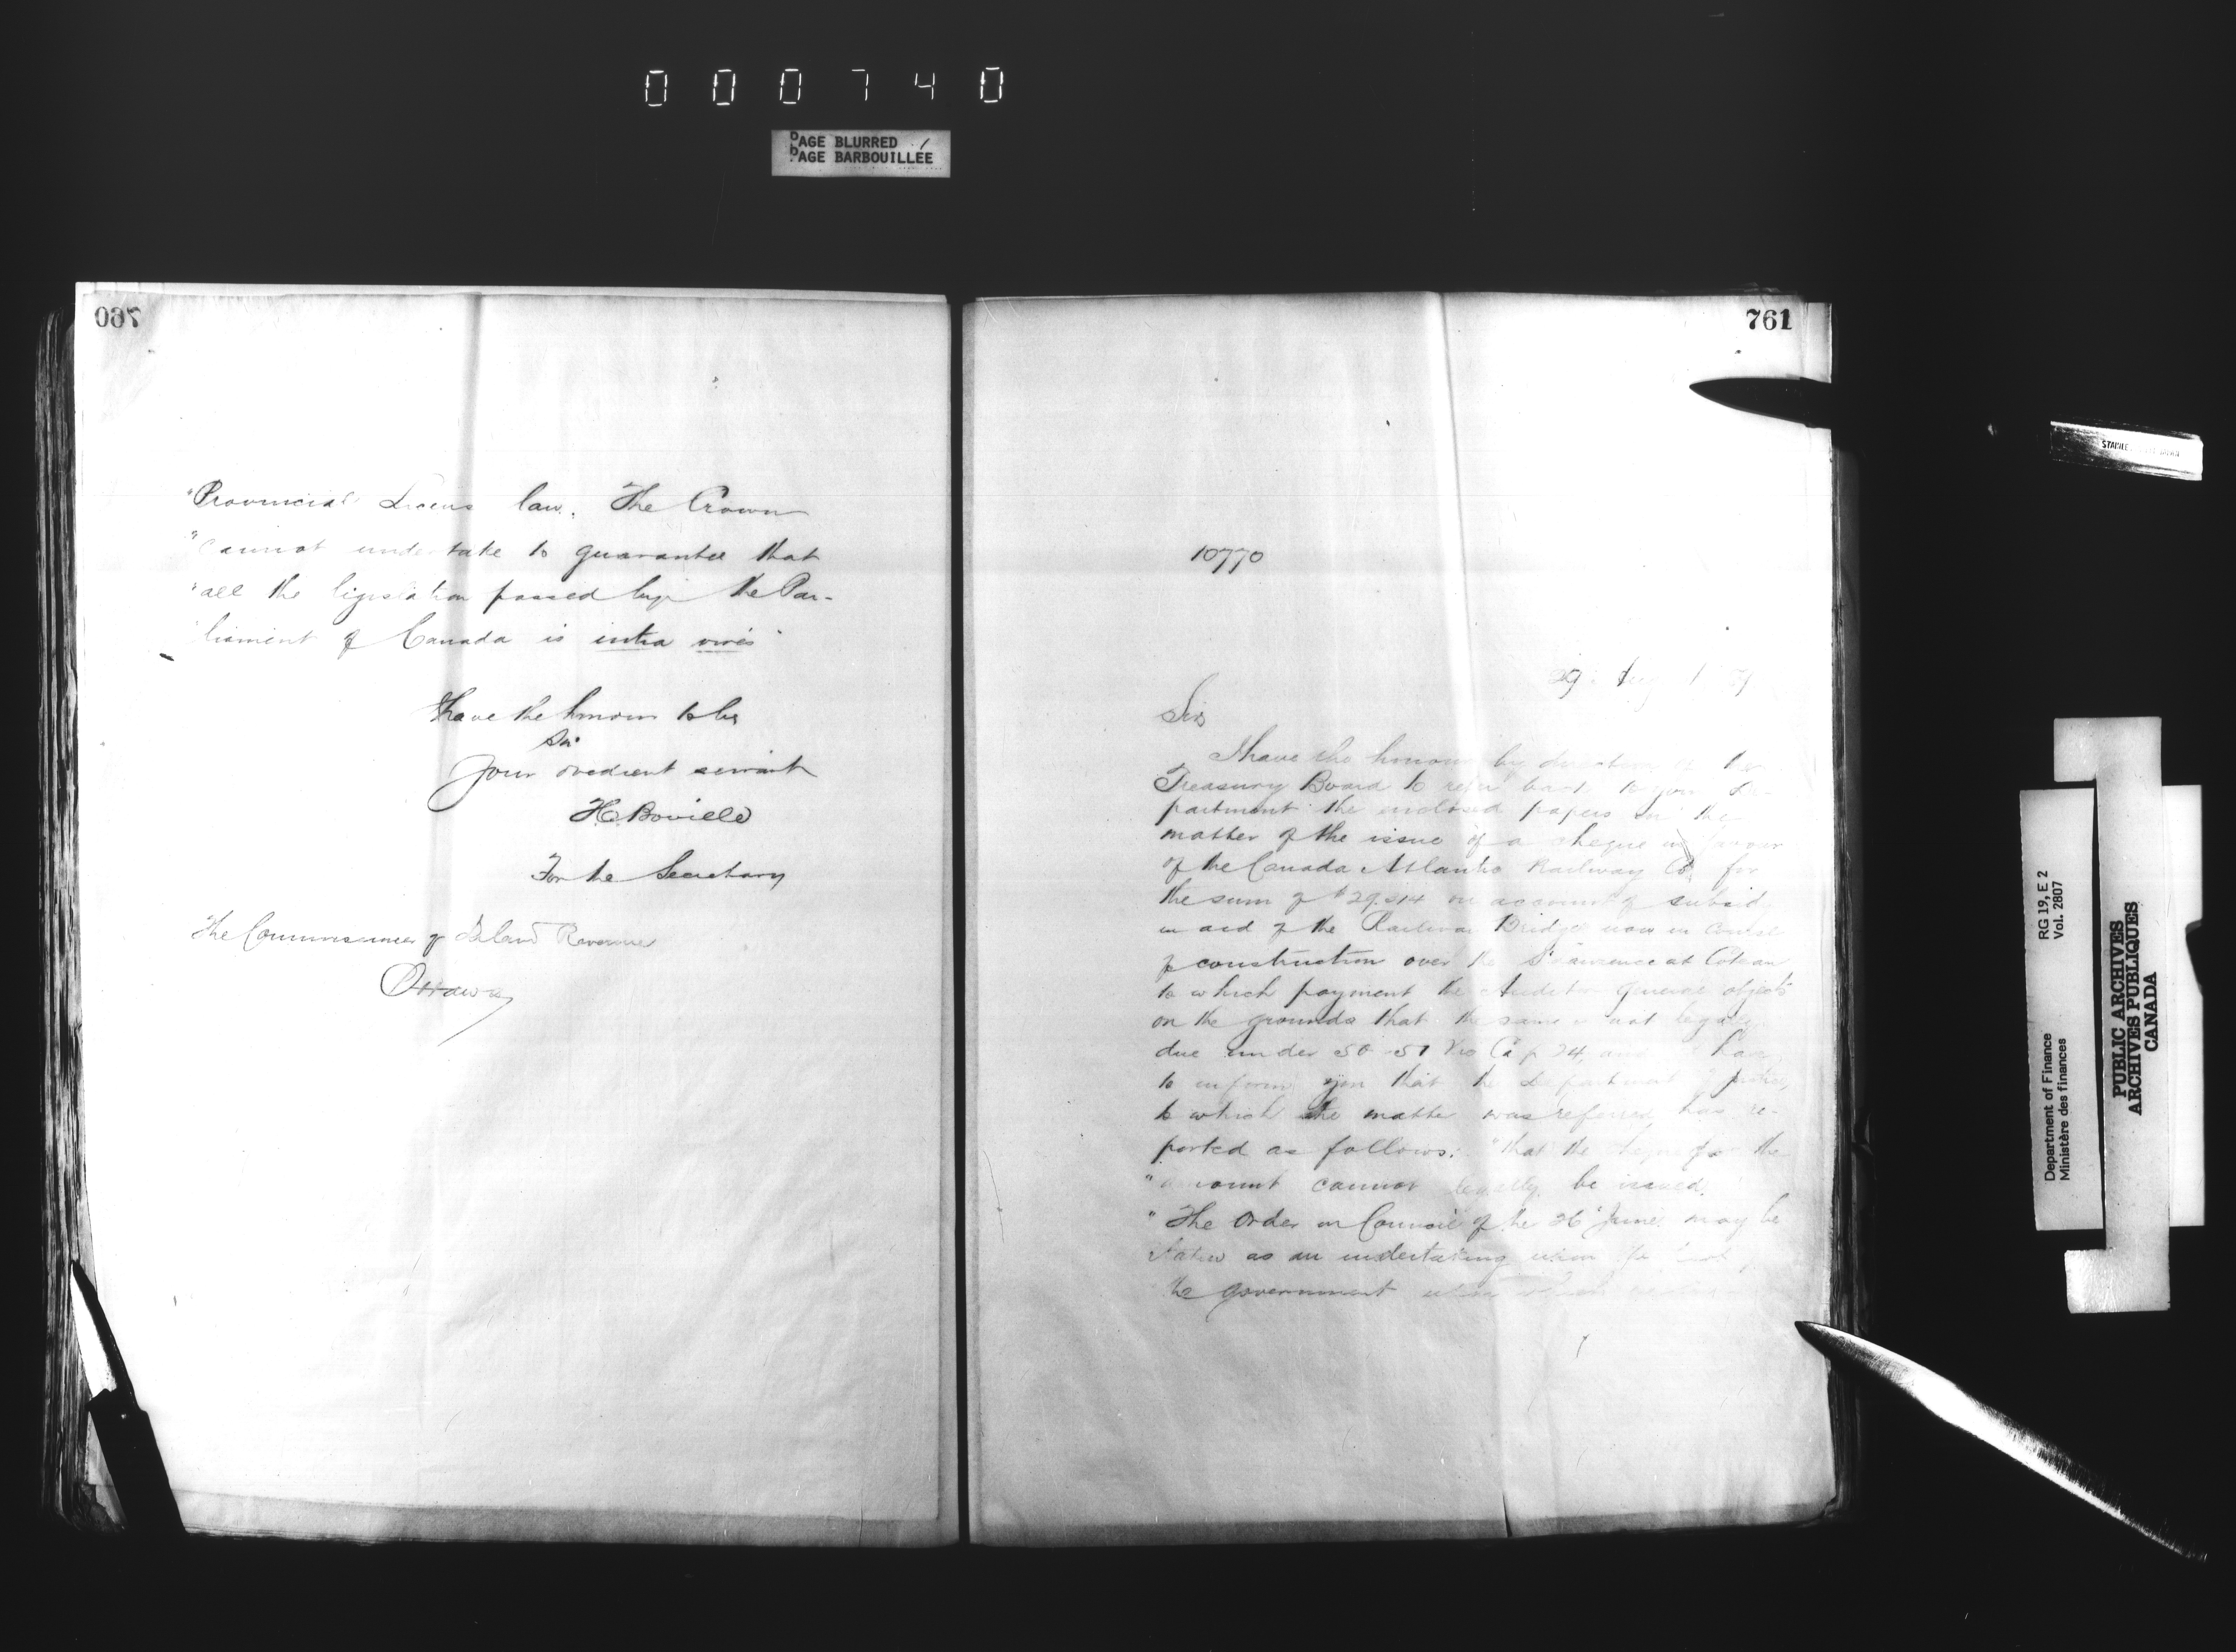 000740
PAGE BLURRED
PAGE BARBOUILLÉE
760
"Provincial Licens law. The Crown
"cannot undertake to guarantee that
"all the legislation passed by the Par-
liament of Canada is intra vires"
I have the honour to be
Sir
Your obedient servant
H. Boville
For the Secretary
The Commissioner of Inland Revenue
Ottawa
761
10770
29 Aug
Sir
I have the honour by direction of the
Treasury Board to refer back to your De-
partment the enclosed papers in the
matter of the issue of a cheque in favour
of the Canada Atlantic Railway Co. for
the sum of on account of subsidy
in aid of the Railway Bridge now in course
of construction over the St Lawrence at Coteau
to which payment the Auditor General objects
on the grounds that the same is not legally
due under 50-51 Vic Cap 24, and
to inform you that the Department of Justice,
to which the matter was referred has re-
ported as follows: "that the cheque for the
"amount cannot legally be issued.
"The Order in Council of the 26 June may be
as an undertaking
the government
STAINLESS
RG 19, E 2
Vol. 2807
Department of Finance
Ministère des finances
PUBLIC ARCHIVES
ARCHIVES PUBLIQUES
CANADA